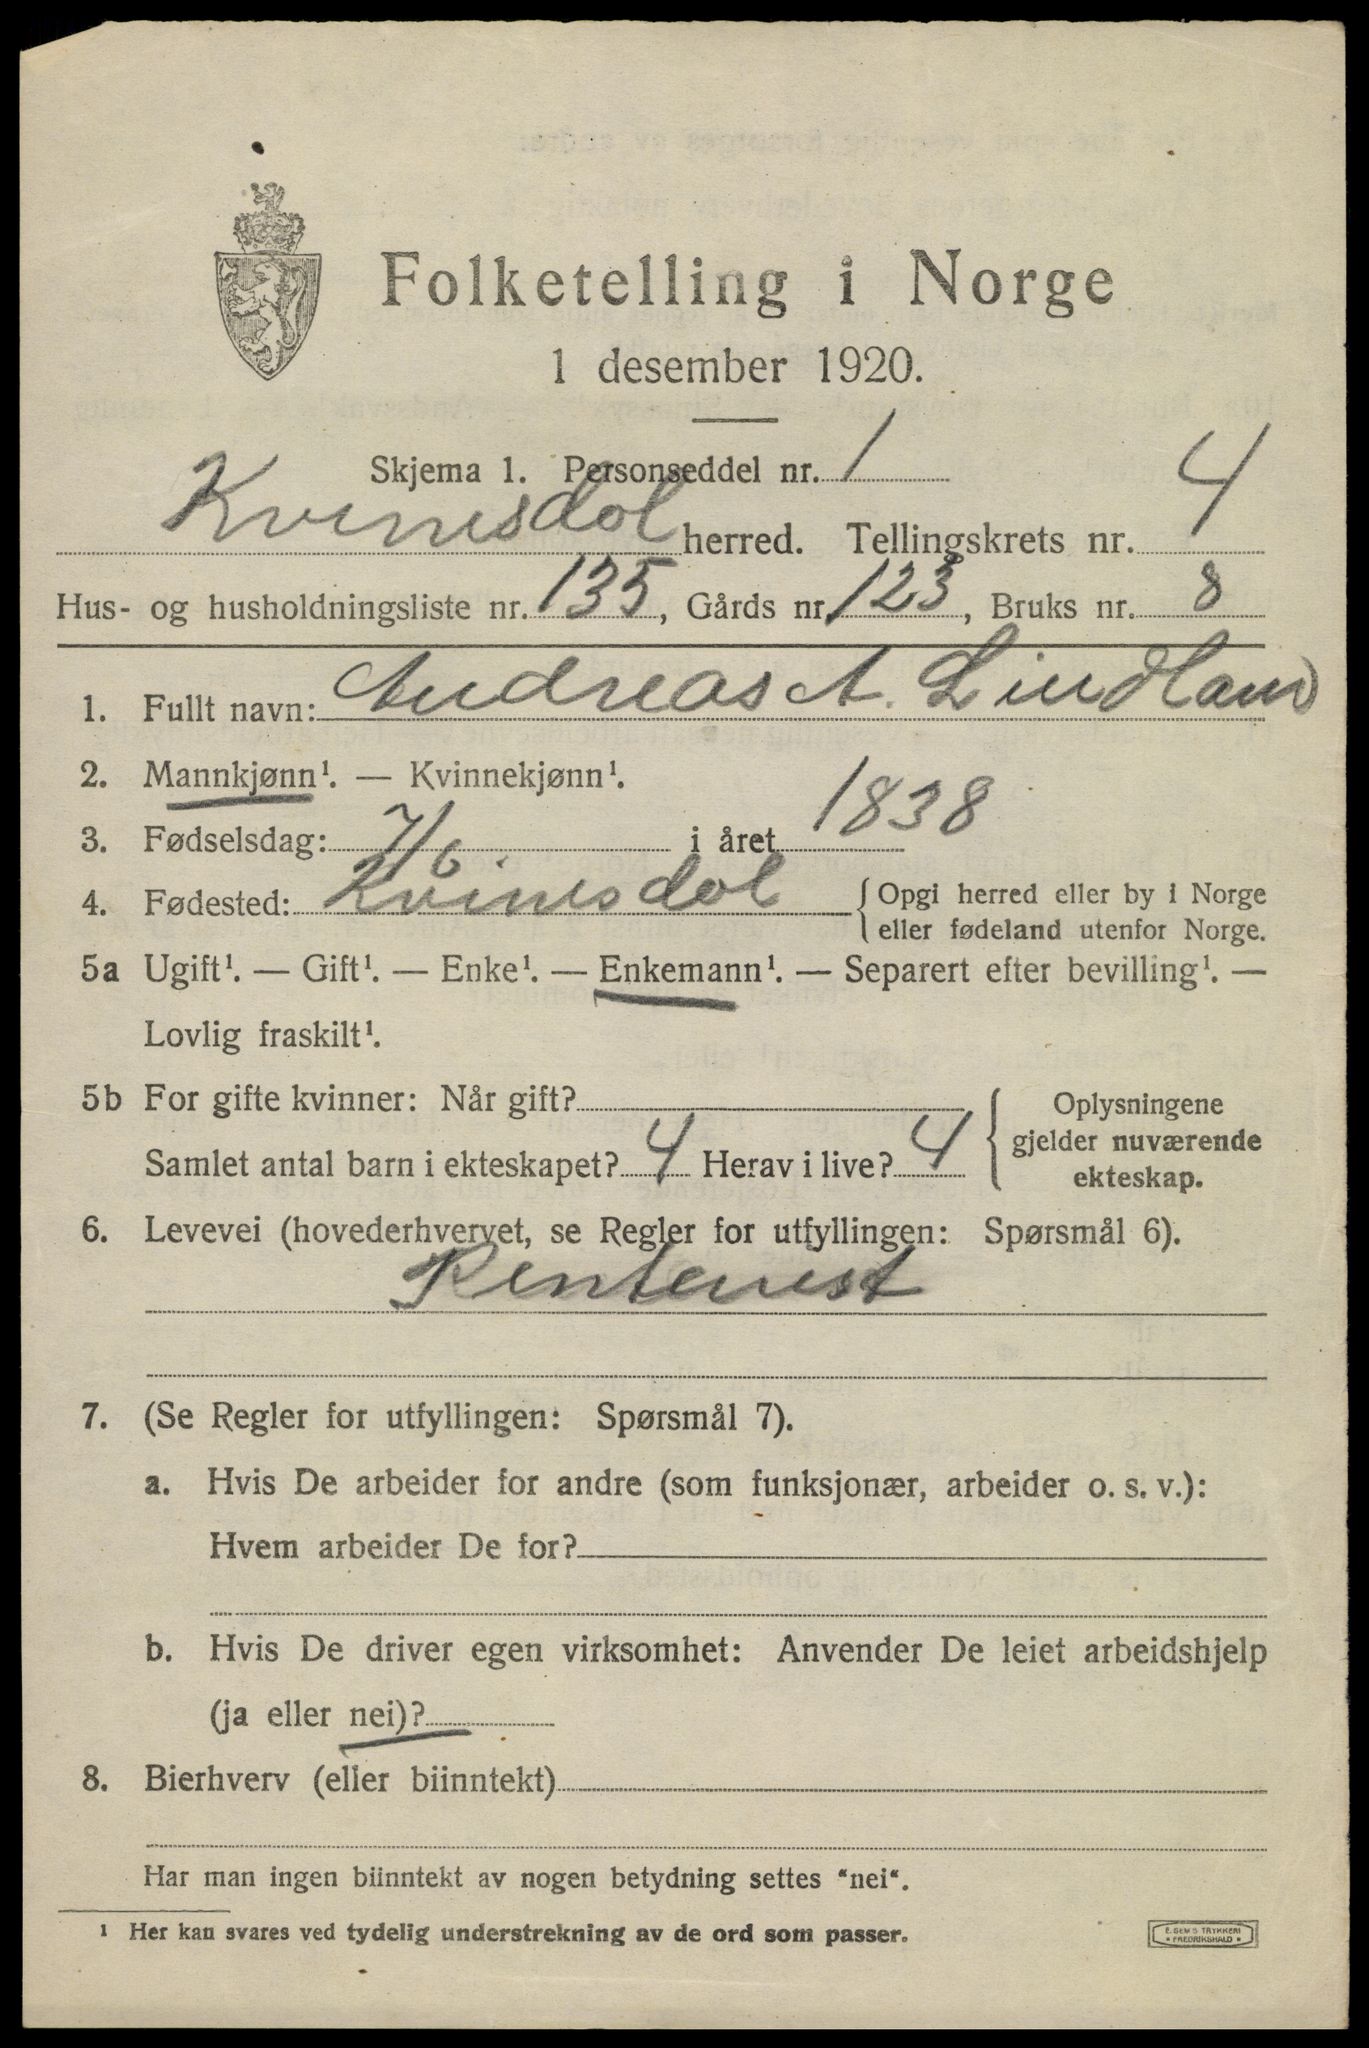 Folketelling i Norge
1 desember 1920.
Skjema 1. Personseddel nr. 1
Kvinesdal herred. Tellingskrets nr. 4
Hus- og husholdningsliste nr. 135, Gårds nr. 123, Bruks nr. 8
1. Fullt navn: Andreas A. Lindland
2. Mannkjønn¹. — Kvinnekjønn¹.
3. Fødselsdag: 7/6 i året 1838
4. Fødested: Kvinesdal {Opgi herred eller by i Norge
eller fødeland utenfor Norge.
5a Ugift¹. — Gift¹. — Enke¹. — Enkemann¹. — Separert efter bevilling¹. —
Lovlig fraskilt¹.
5b For gifte kvinner: Når gift?
Samlet antal barn i ekteskapet? 4 Herav i live? 4
Oplysningene
gjelder nuværende
ekteskap.
6. Levevei (hovederhvervet, se Regler for utfyllingen: Spørsmål 6).
Rentenist
7. (Se Regler for utfyllingen: Spørsmål 7).
a. Hvis De arbeider for andre (som funksjonær, arbeider o. s. v.):
Hvem arbeider De for?
b. Hvis De driver egen virksomhet: Anvender De leiet arbeidshjelp
(ja eller nei)?
8. Bierhverv (eller biinntekt)
Har man ingen biinntekt av nogen betydning settes "nei".
¹ Her kan svares ved tydelig understrekning av de ord som passer.
E. SEMS TRYKKERI
* FREDRIKSHALD *